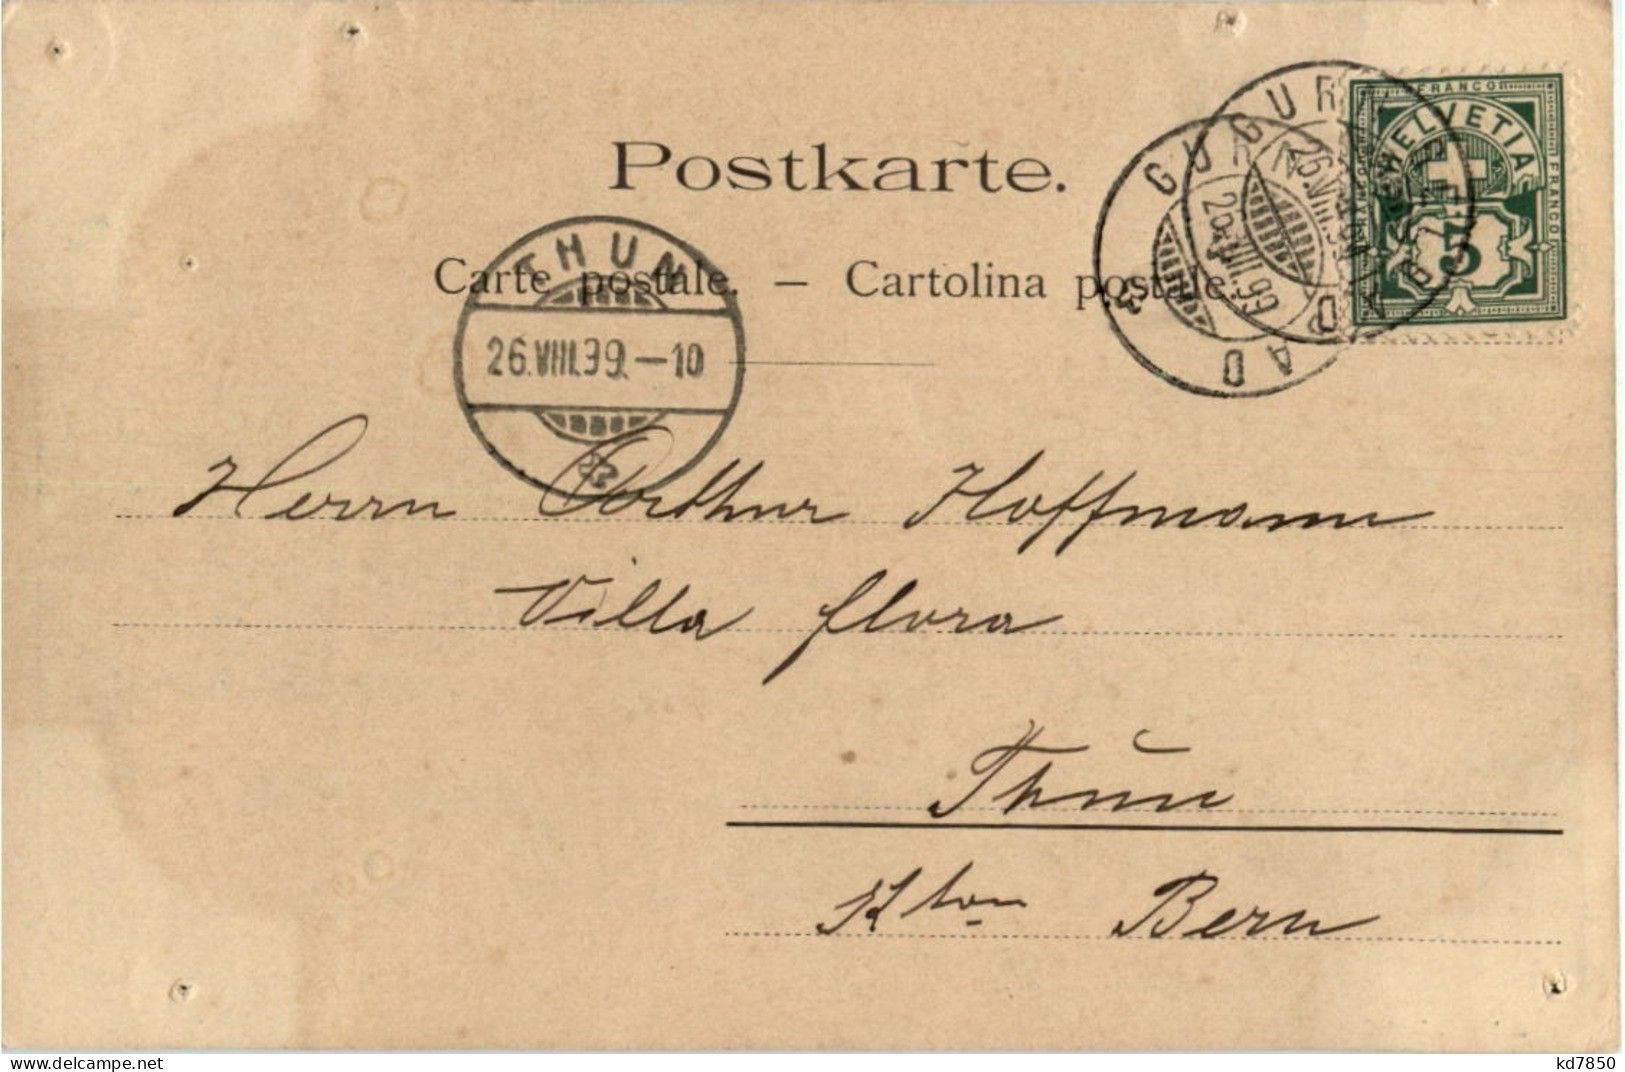 Postkarte.
Carte postale. — Cartolina postale.
THUN
26.VIII.99.—10
GURNIGELBAD
26.VIII.99
FRANCO
HELVETIA
FRANCO
5
Herrn Arthur Hoffmann
Villa flora
Thun
Kton Bern
kd7850